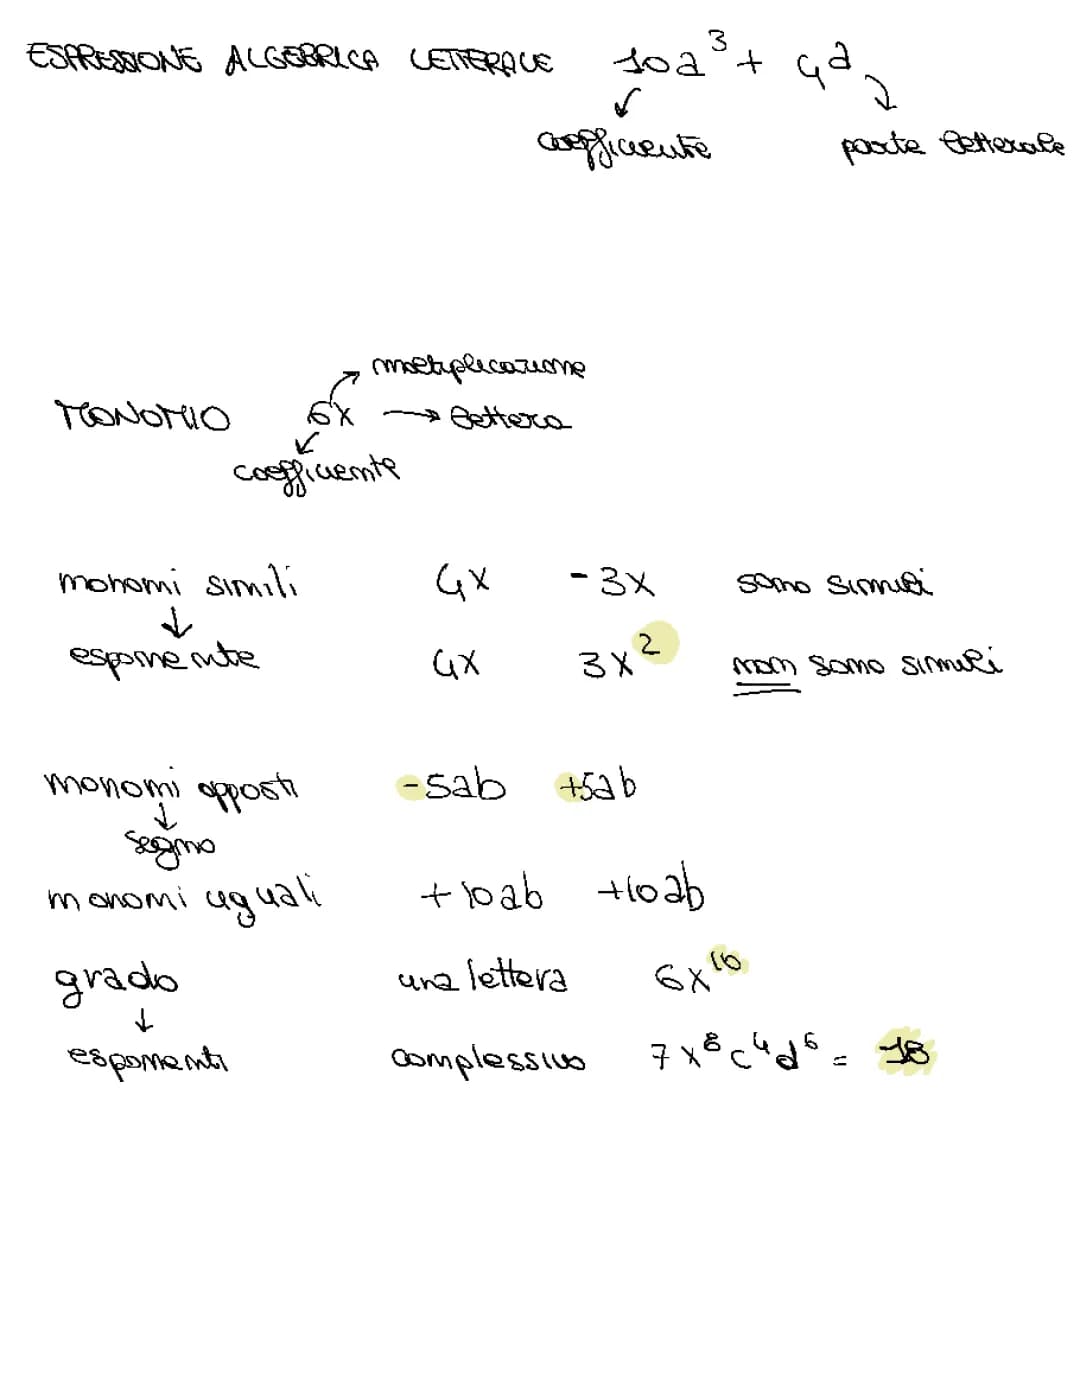 ESPRESSIONE ALGEBRICA LETTERALE 10a³ + 4a
coefficiente parte letterale
moltiplicazione
MONOMIO 6x → lettera
coefficiente
monomi simili 4x -3x sono simili
↓
esponente 4x 3x² non sono simili
monomi opposti -5ab +5ab
↓
segno
monomi uguali +10ab +10ab
grado una lettera 6x¹⁰
↓
esponenti complessivo 7x⁸c⁴d⁶ = 18